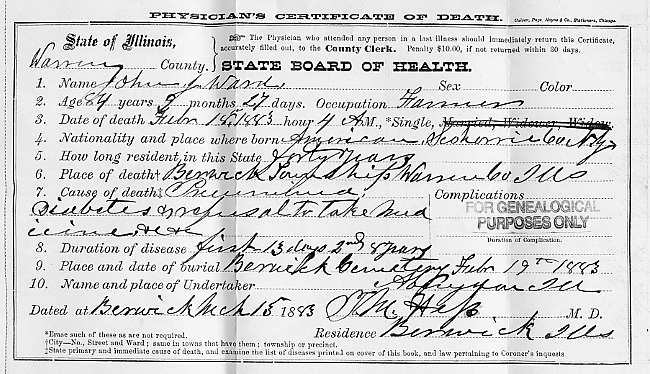 PHYSICIAN'S CERTIFICATE OF DEATH. Culver, Page, Hoyne & Co., Stationers, Chicago.
State of Illinois,
Warren County.
The Physician who attended any person in a last illness should immediately return this Certificate,
accurately filled out, to the County Clerk. Penalty $10.00, if not returned within 30 days.
STATE BOARD OF HEALTH.
1. Name John J Ward Sex Color
2. Age 84 years 9 months 27 days. Occupation Farmer
3. Date of death Febr 18, 1883 hour 4 A.M., *Single, Married, Widower, Widow
4. Nationality and place where born American Schoharrie Co N.Y.
5. How long resident in this State forty years
6. Place of death† Berwick Township Warren Co Ills
7. Cause of death‡ Pneumonia, Complications
Diabetes & refusal to take med
icine, &c &c
FOR GENEALOGICAL
PURPOSES ONLY
Duration of Complication.
8. Duration of disease first 13 days 2nd 8 years
9. Place and date of burial Berwick Cemetery Febr 19th 1883
10. Name and place of Undertaker Abingdon Ill
Dated at Berwick Mch 15 1883 M. Hess M. D.
Residence Berwick Ills
*Erase such of these as are not required.
†City—No., Street and Ward; same in towns that have them; township or precinct.
‡State primary and immediate cause of death, and examine the list of diseases printed on cover of this book, and law pertaining to Coroner's inquests.